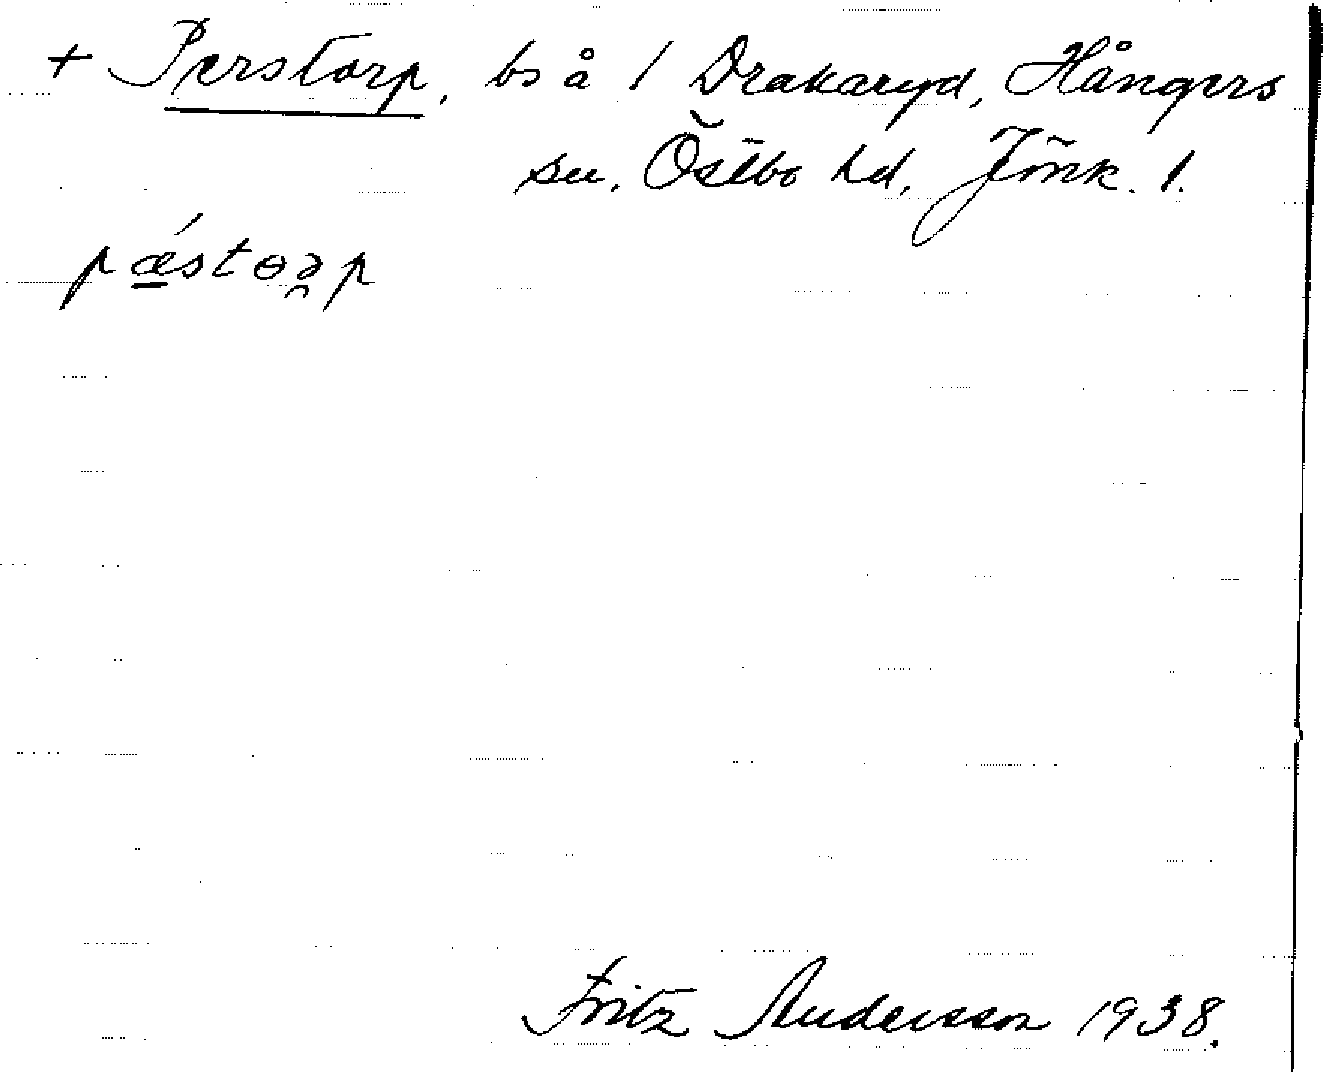 + Perstorp, bs å 1 Drakaryd, Hångers
sn, Östbo hd, Jönk. l.
pǽstɵə̯p
Fritz Andersson 1938.